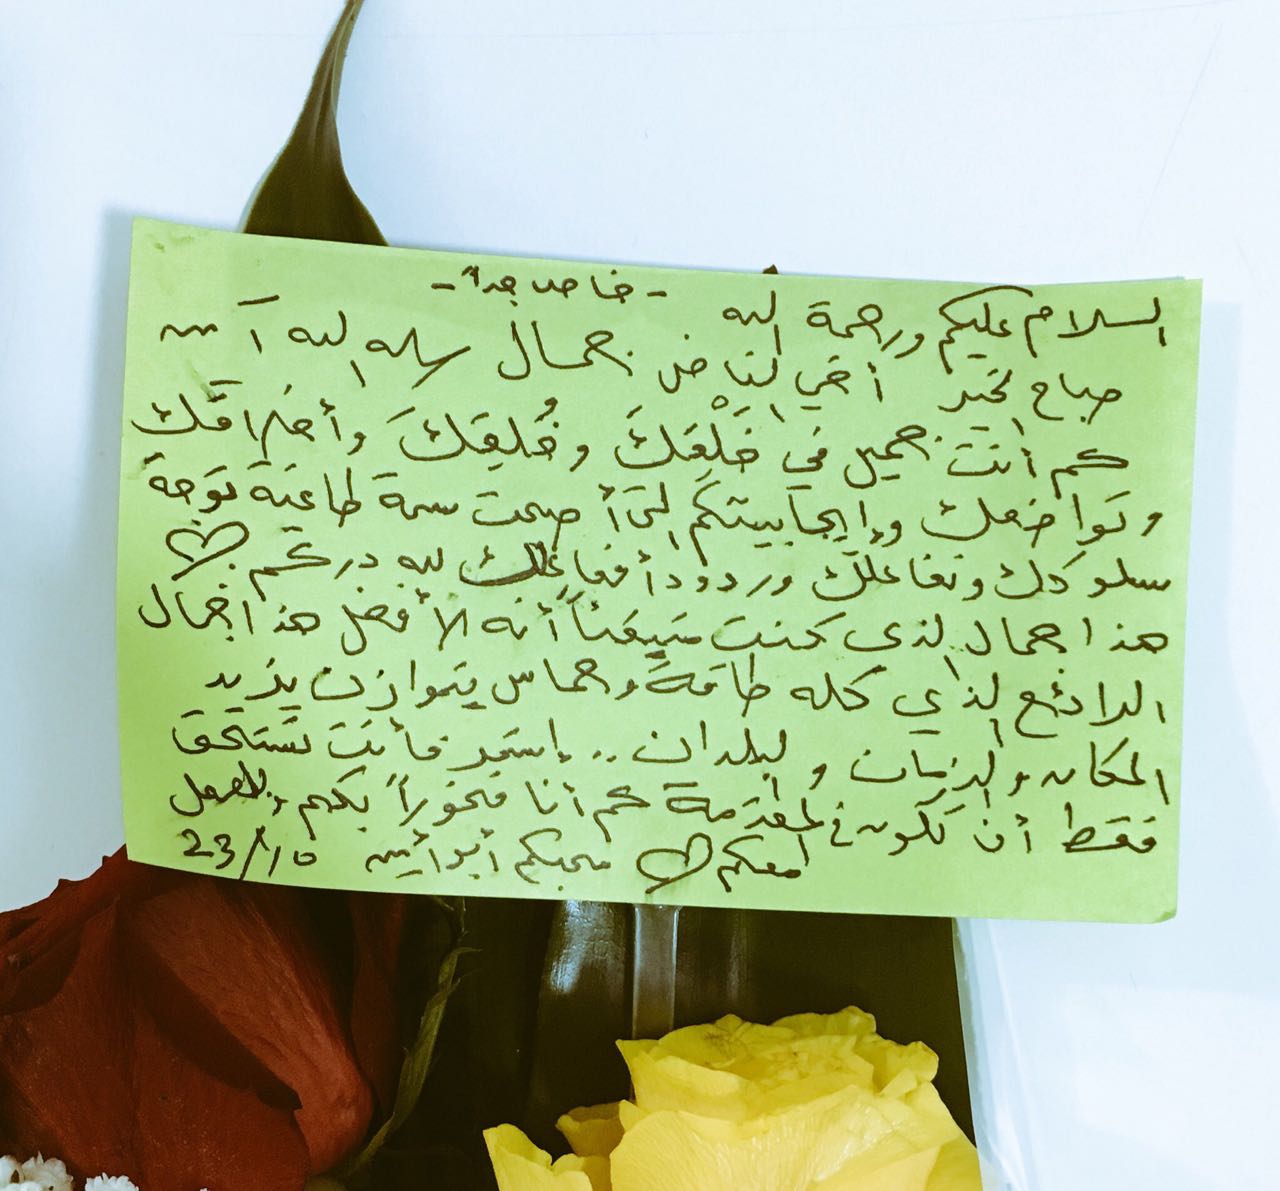 - خاص جداً -
السلام عليكم ورحمة الله
صباح الخير أخي الفاضل جمال سلمه الله آمين
كم أنت جميل في خَلْقِكَ وخُلقِكَ وأخلاقك
وتواضعك وإيجابيتكم التي أصبحت سمة طاغية توجة
سلوكك وتفاعلك وردود أفعالك لله دركم ♡
هذا جمال الذي كنت متيقناً أنه الأفضل هذا الجمال
الرائع الذي كله طاقة وحماس يتوازن يزيد
المكان والزمان والبلدان .. إستمر فأنت تستحق
فقط أن تكون في المقدمة كم أنا فخوراً بكم وبالعمل
معكم ♡ محبكم أبو أيمن 23/10